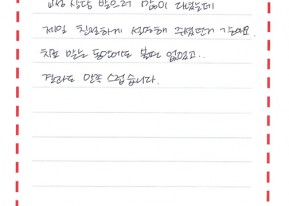 교정 상담 받으러 많이 다녔는데
제일 친절하게 설명해 주셨던거 같아요.
치료 받는 동안에도 불편 없었고..
결과도 만족스럽습니다.